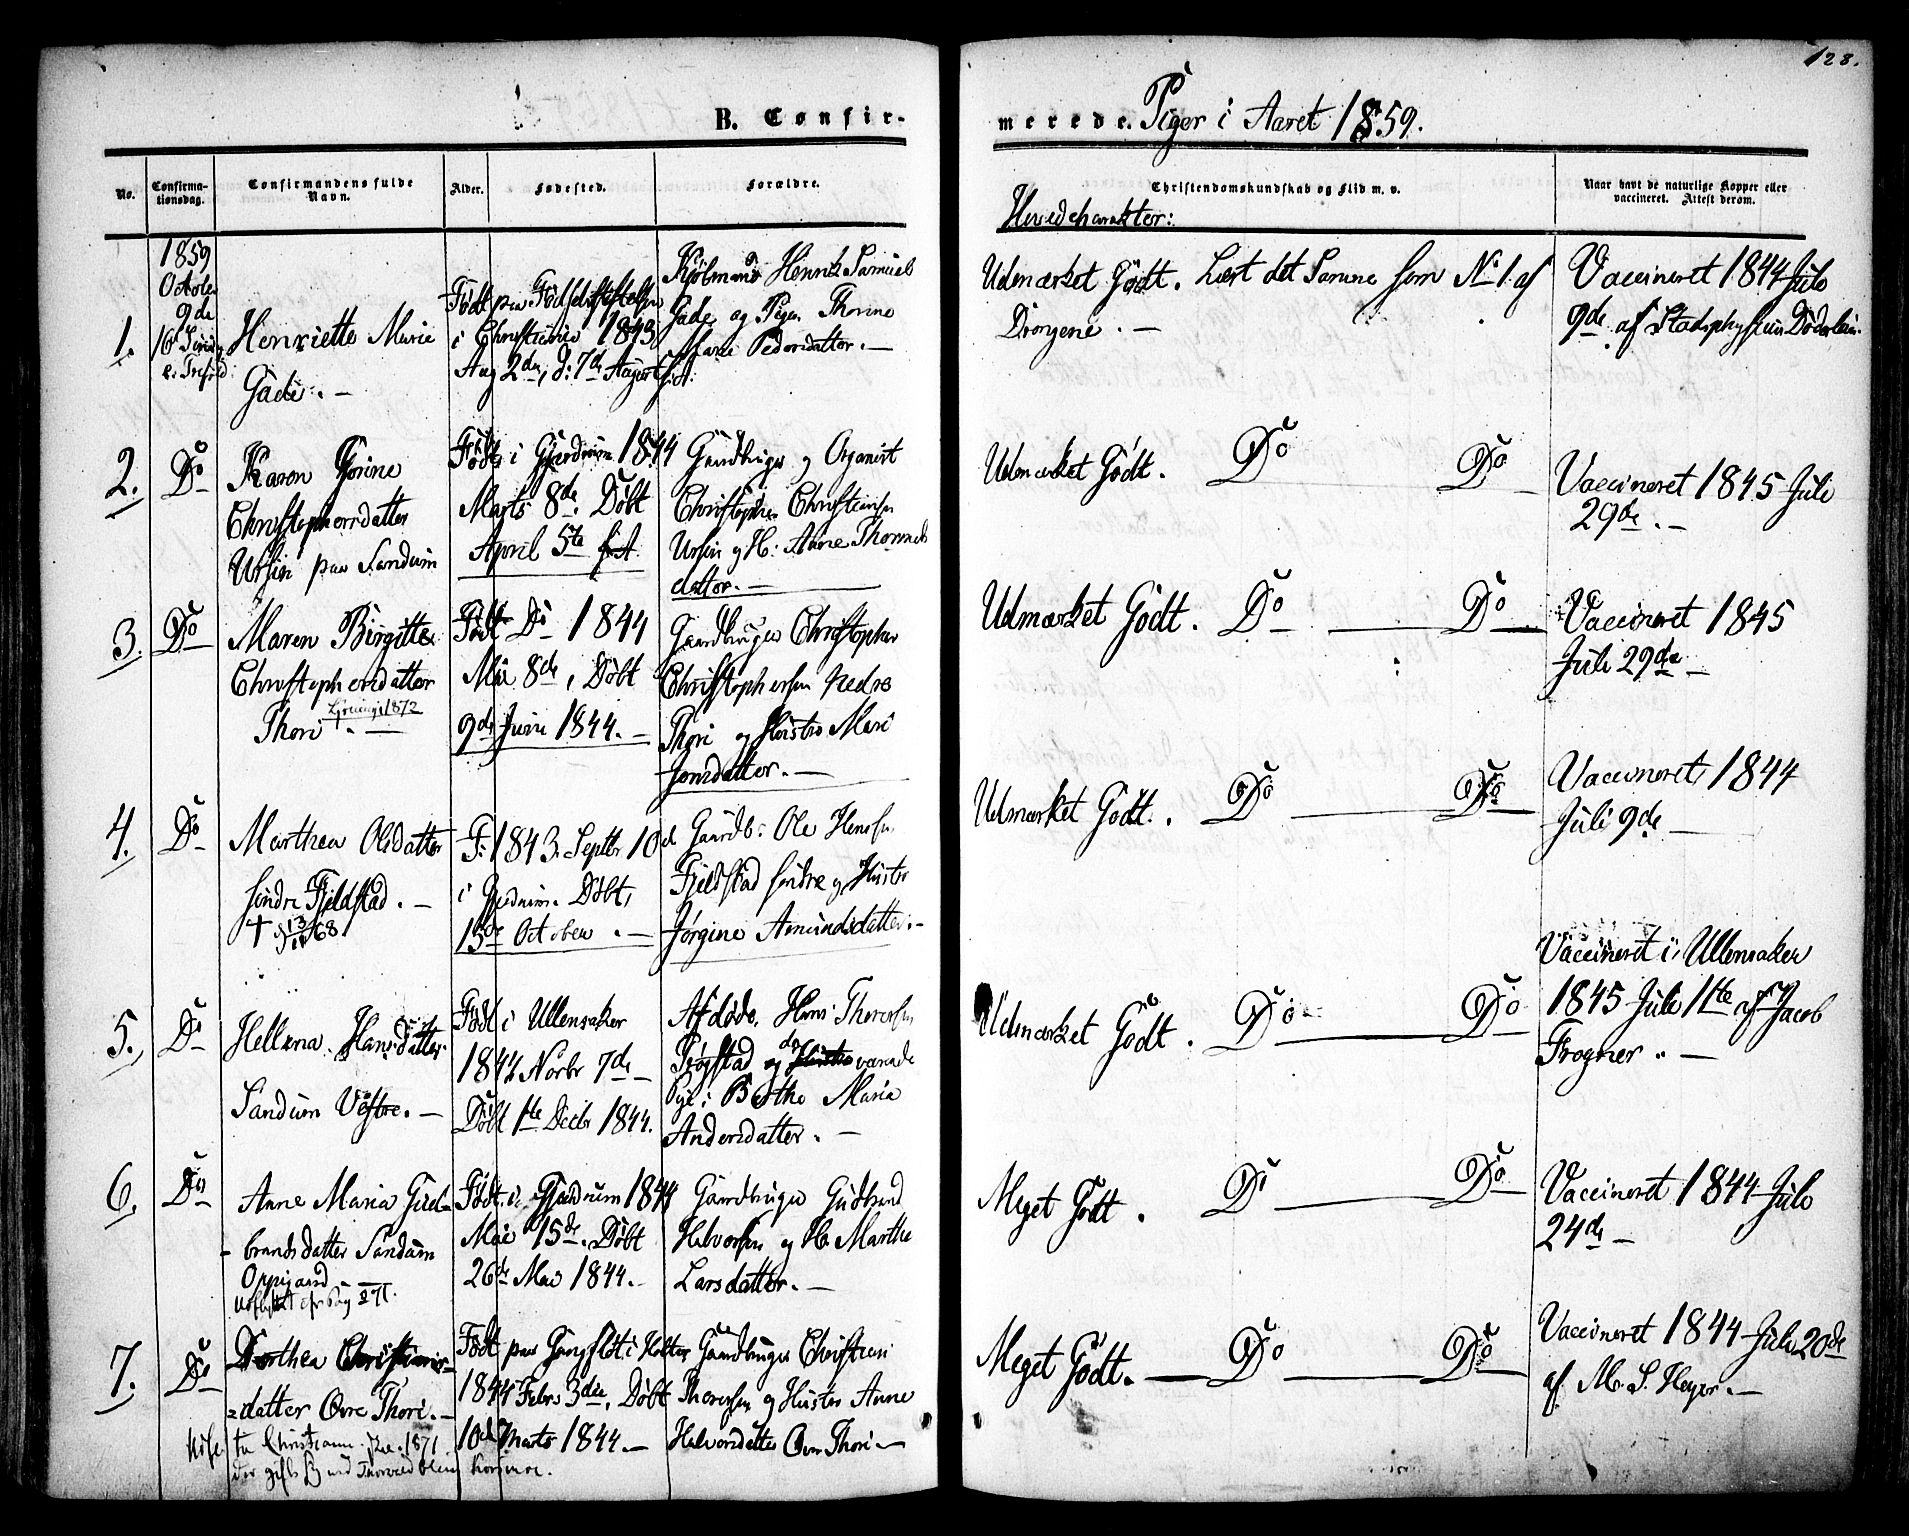 128.
B. Confir-
merede. Piger i Aaret 1859.
No.
Confirma-
tionsdag.
Confirmandens fulde
Navn.
Alder.
Fødested.
Forældre.
Christendomskundskab og Flid m. v.
Hovedcharakter:
Naar havt de naturlige Kopper eller
vaccineret. Attest derom.
1.
1859
October
9de
16 Sønd:
e. Trefold:
Henriette Marie
Gade. —
Født paa Fødselsstiftelsen
i Christiania 1843
Aug 2den, d: 7de August
Kjøbmand Henrik Samuel
Gade og Pigen Thorine
Marie Pedersdatter. —
Udmærket Godt. Læst det Samme som No 1 af
Drengene. —
Vaccineret 1844 Julo
9de af Stadsphysicus Døderlein.
2.
Do
Karen Gorine
Christophersdatter
Ursin paa Sandum
Født i Gjerdrum 1844
Marts 8de. Døbt
April 5te
Gaardbruger og Organist
Christopher Christiansen
Ursin og H: Anne Thomas
datter. —
Udmærket Godt. Do Do
Vaccineret 1845 Juli
29de. —
3.
Do
Maren Birgitte
Christophersdatter
Thori
1872
Født Do 1844
Mai 8de, Døbt
9de Juni 1844. —
Gaardbruger Christopher
Christophersen nedre
Thori og Hustro Mari
Jonsdatter. —
Udmærket Godt. Do — Do
Vaccineret 1845
Juli 29de —
4.
Do
Marthea Olsdatter
søndre Fjeldstad. —
† 13/11 68
F: 1843. Septbr 10de
i Gjerdrum. Døbt
15de October. —
Gaardb: Ole Hansen
Fjeldstad søndre og Hustro
Jørgine Amundsdatter. —
Udmærket Godt. Do — Do
Vaccineret 1844
Juli 9de —
5.
Do
Hellena Hansdatter
Sandum Vestre. —
Født i Ullensaker
1844 Novbr 7de —
Døbt 1ste Decbr 1844.
Afdøde Hans Thoresen
Røgstad og do Hustro værende
Pige: Berthe Maria
Andersdatter. —
Udmærket Godt. Do — Do
Vaccineret i Ullensaker
1845 Juli 1ste af Jacob
Frogner. —
6.
Do
Anne Maria Gud-
brandsdatter Sandum
Oppigard —
Udflyttet cfr Pag 271.
Født i Gjerdrum 1844
Mai 15de. Døbt
26de Mai 1844. —
Gaardbruger Gudbrand
Halvorsen og H. Marthe
Larsdatter. —
Meget Godt. Do — Do
Vaccineret 1844 Julo
24de —
7.
Do
Dorthea Christians-
datter Øvre Thori. —
Født paa i Holter
1844 Febr 3die, Døbt
10de Marts 1844. —
Gaardbruger Christian
Thoresen og Hustro Anne
Halvorsdatter Øvre Thori —
til Christiania 1871
der gift med Thorvald
Meget Godt. — Do — Do
Vaccineret 1844 Juli 20de
af M. S. Heyer. —